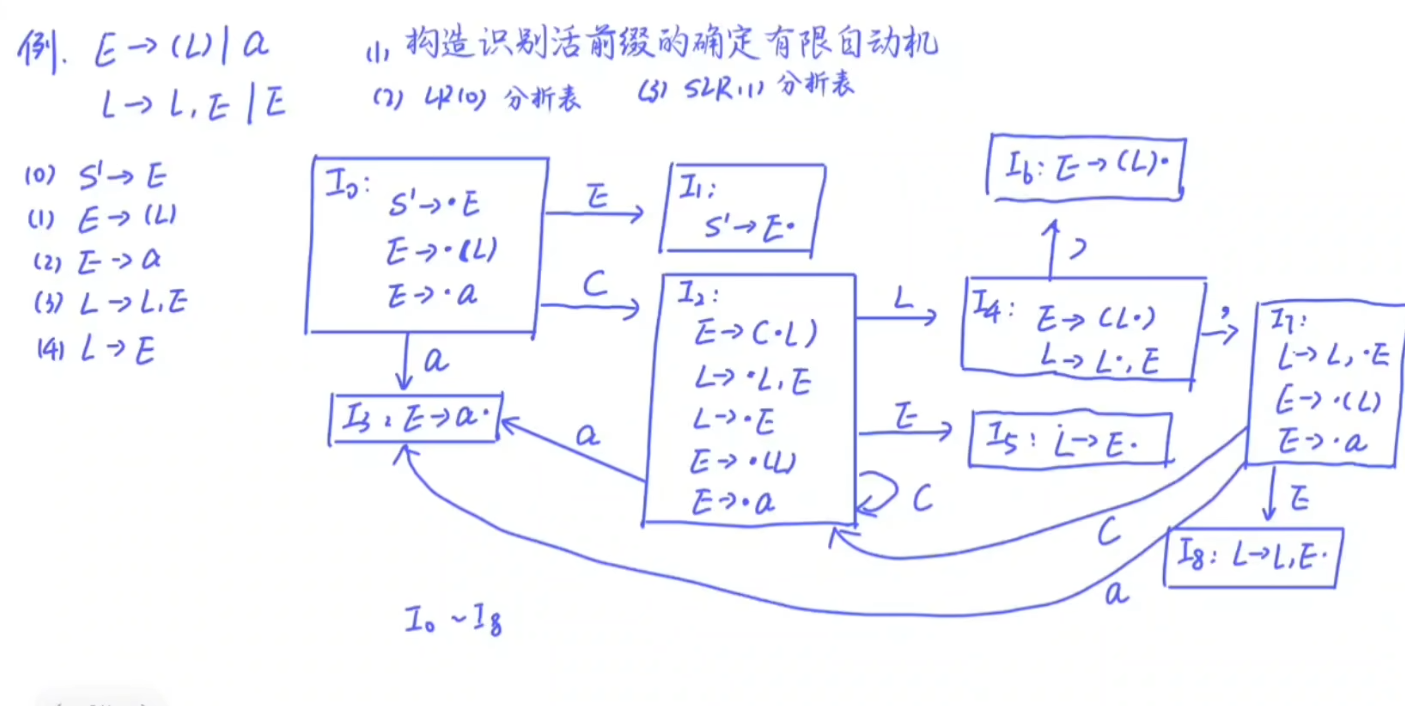 例. E → (L) | a
L → L, E | E
(1) 构造识别活前缀的确定有限自动机
(2) LR(0) 分析表 (3) SLR(1) 分析表
(0) S' → E
(1) E → (L)
(2) E → a
(3) L → L, E
(4) L → E
I0:
S' → ·E
E → ·(L)
E → ·a
E
(
a
I1:
S' → E·
I2:
E → (·L)
L → ·L, E
L → ·E
E → ·(L)
E → ·a
I3: E → a·
a
L
E
(
I4: E → (L·)
L → L·, E
)
,
I5: L → E·
I6: E → (L)·
I7:
L → L, ·E
E → ·(L)
E → ·a
E
(
a
I8: L → L, E·
I0 ~ I8